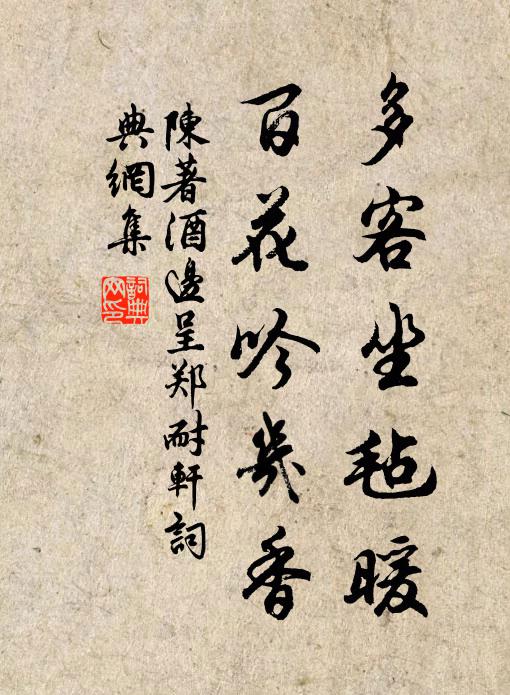 多客坐毡暖
百花吟几香
陳著酒邊呈郑耐軒詞
典網集
詞典網印